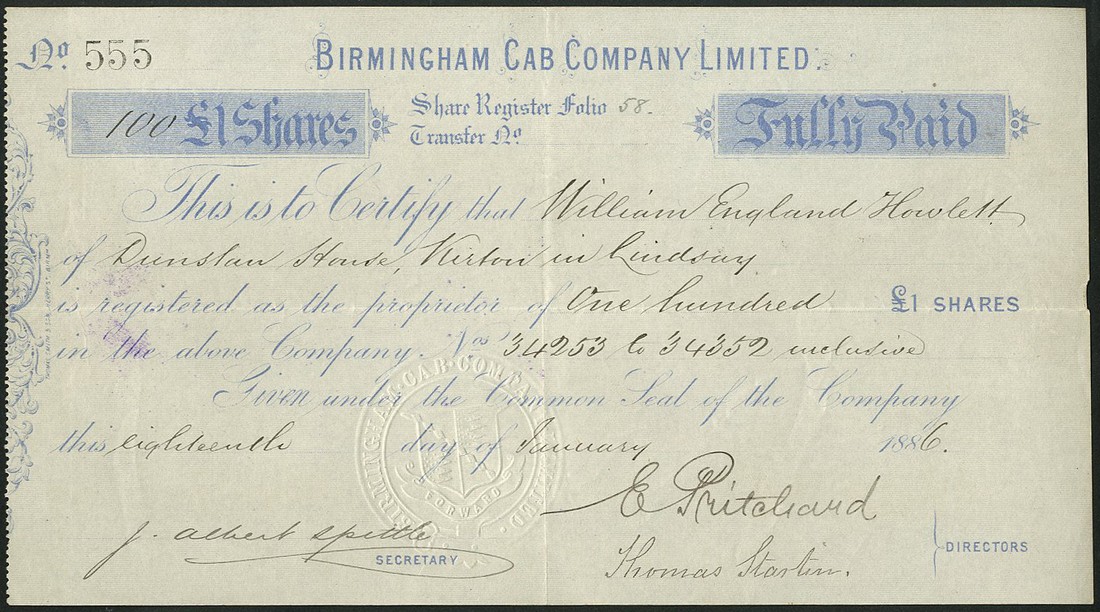 No. 555
BIRMINGHAM CAB COMPANY LIMITED.
100 £1 Shares
Share Register Folio 58.
Transfer No.
Fully Paid
This is to Certify that William England Howlett
of Dunstan House, Kirton in Lindsay
is registered as the proprietor of One hundred £1 SHARES
in the above Company. Nos. 34253 to 34352 inclusive
Given under the Common Seal of the Company
this eighteenth day of January 1886.
BIRMINGHAM CAB COMPANY LIMITED.
FORWARD
E Pritchard
J. Albert Spittle
SECRETARY
Thomas Startin.
DIRECTORS